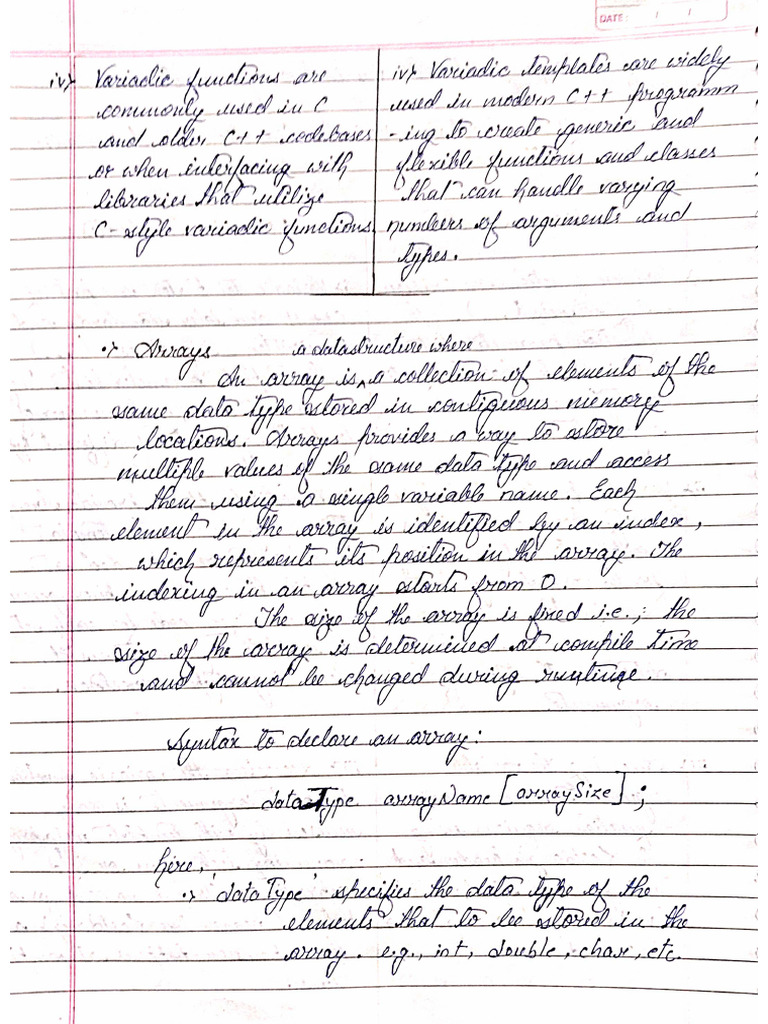 DATE: / /
iv) Variadic functions are
commonly used in C
and older C++ codebases
or when interfacing with
libraries that utilize
C-style variadic functions.
iv) Variadic templates are widely
used in modern C++ programm
-ing to create generic and
flexible functions and classes
that can handle varying
numbers of arguments and
types.
Arrays
a datastructure where
An array is ^ a collection of elements of the
same data type stored in contiguous memory
locations. Arrays provides a way to store
multiple values of the same data type and access
them using a single variable name. Each
element in the array is identified by an index,
which represents its position in the array. The
indexing in an array starts from 0.
The size of the array is fixed i.e.; the
size of the array is determined at compile time
and cannot be changed during runtime.
Syntax to declare an array:
dataType arrayName [arraySize];
here,
'dataType' specifies the data type of the
elements that to be stored in the
array. e.g., int, double, char, etc.